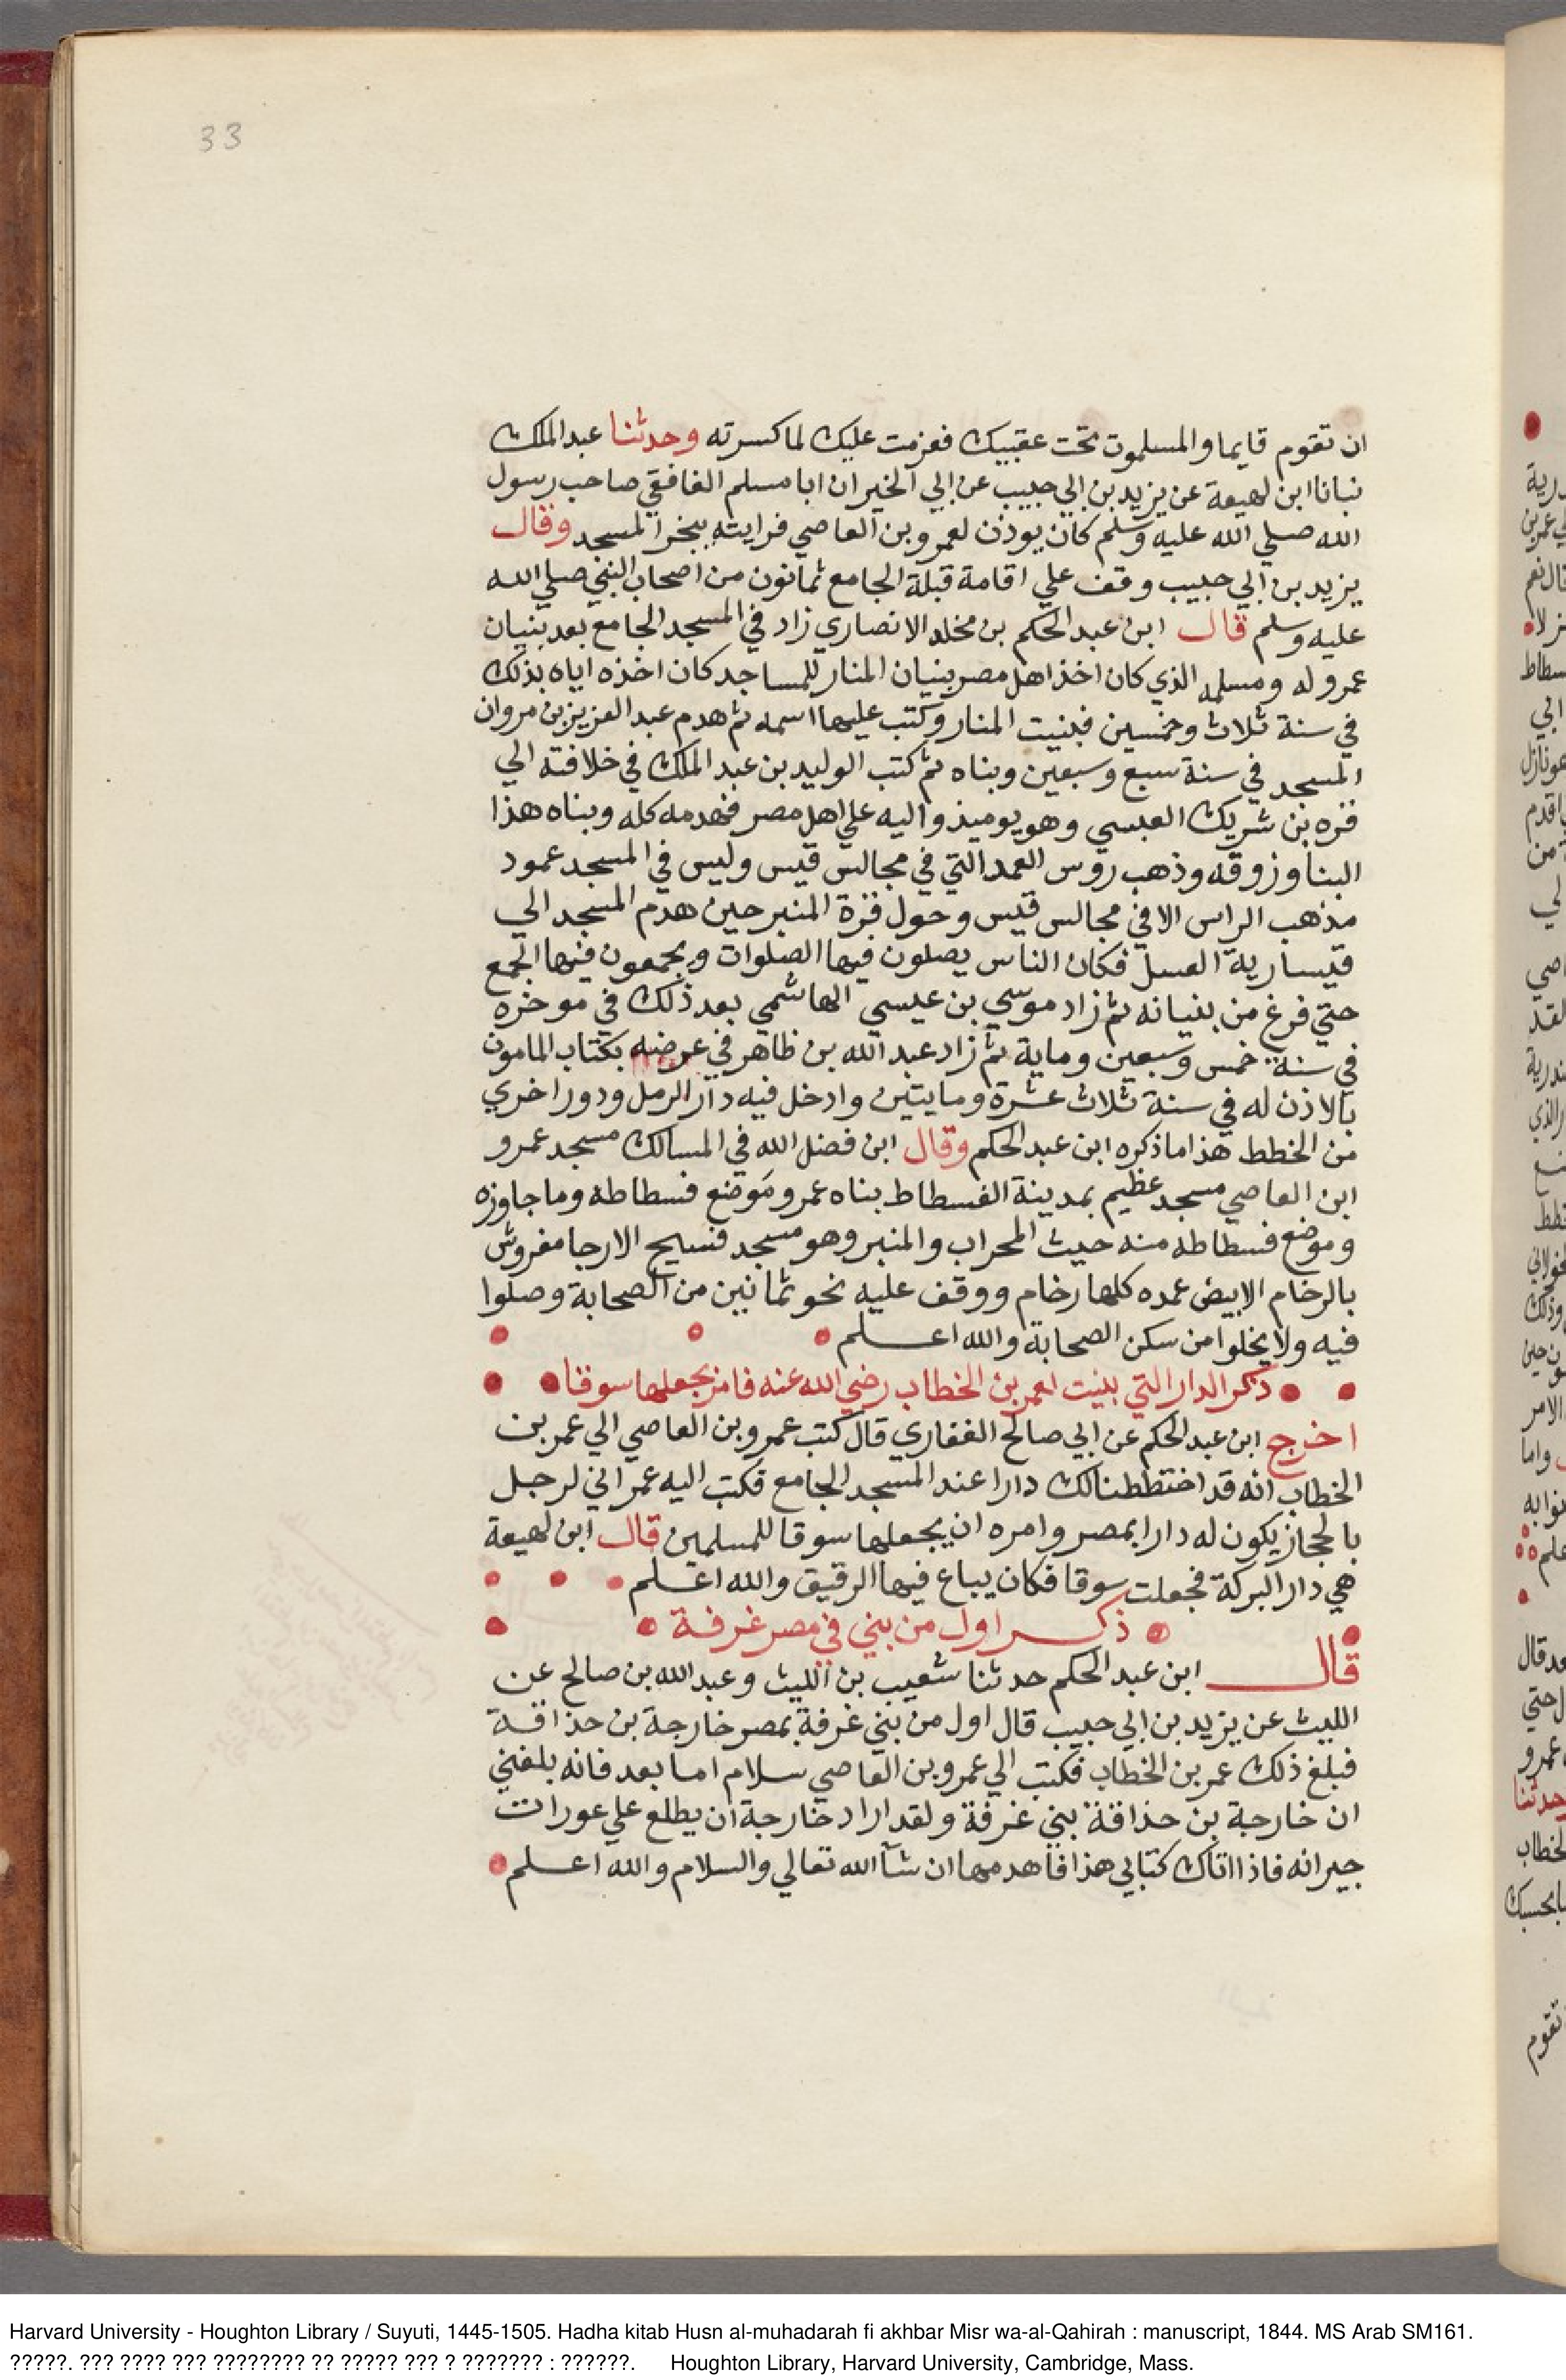 33
ان تقوم قايما والمسلمون تحت عقبيك فعزمت عليك لما كسرته وحدثنا عبد الملك
نبانا ابن لهيعة عن يزيد بن ابي حبيب عن ابي الخير ان ابا مسلم الغافقي صاحب رسول
الله صلي الله عليه وسلم كان يوذن لعمرو بن العاصي فرايته يبخر المسجد وقال
يزيد بن ابي حبيب وقف علي اقامة قبلة الجامع ثمانون من اصحاب النبي صلي الله
عليه وسلم قال ابن عبد الحكم بن مخلد الانصاري زاد في المسجد الجامع بعد بنيان
عمرو له ومسلمه الذي كان اخذ اهل مصر ببنيان المنار للمساجد كان اخذه اياه بذلك
في سنة ثلاث وخمسين فبنيت المنار وكتب عليها اسمه ثم هدم عبد العزيز بن مروان
المسجد في سنة سبع وسبعين وبناه ثم كتب الوليد بن عبد الملك في خلافته الي
قره بن شريك العبسي وهو يوميذ واليه علي اهل مصر فهدمه كله وبناه هذا
البنا وزوقه وذهب روس العمد التي في مجالس قيس وليس في المسجد عمود
مذهب الراس الا في مجالس قيس وحول قرة المنبر حين هدم المسجد الي
قيسارية العسل فكان الناس يصلون فيها الصلوات ويجمعون فيها الجمع
حتي فرغ من بنيانه ثم زاد موسي بن عيسي الهاشمي بعد ذلك في موخره
في سنة خمس وسبعين وماية ثم زاد عبد الله بن ظاهر في عرضه بكتاب المامون
بالاذن له في سنة ثلاث عشرة ومايتين وادخل فيه دار الرمل ودور اخري
من الخطط هذا ما ذكره ابن عبد الحكم وقال ابن فضل الله في المسالك مسجد عمرو
ابن العاصي مسجد عظيم بمدينة الفسطاط بناه عمرو موضع فسطاطه وما جاوزه
وموضع فسطاطه منه حيث المحراب والمنبر وهو مسجد فسيح الارجا مفروش
بالرخام الابيض عمده كلها رخام ووقف عليه نحو ثمانين من الصحابة وصلوا
فيه ولا يخلوا من سكن الصحابة والله اعلم
ذكر الدار التي بنيت لعمر بن الخطاب رضي الله عنه فامر بجعلها سوقا
اخرج ابن عبد الحكم عن ابي صالح الغفاري قال كتب عمرو بن العاصي الي عمر بن
الخطاب انه قد اختططنا لك دارا عند المسجد الجامع فكتب اليه عمر اني لرجل
بالحجاز يكون له دارا بمصر وامره ان يجعلها سوقا للمسلمين قال ابن لهيعة
هي دار البركة فجعلت سوقا فكان يباع فيها الرقيق والله اعلم
ذكر اول من بني في مصر غرفة
قال ابن عبد الحكم حدثنا شعيب بن الليث وعبد الله بن صالح عن
الليث عن يزيد بن ابي حبيب قال اول من بني غرفة بمصر خارجة بن حذافة
فبلغ ذلك عمر بن الخطاب فكتب الي عمرو بن العاصي سلام اما بعد فانه بلغني
ان خارجة بن حذافة بني غرفة ولقد اراد خارجة ان يطلع علي عورات
جيرانه فاذا اتاك كتابي هذا فاهدمها ان شآ الله تعالي والسلام والله اعلم
Harvard University - Houghton Library / Suyuti, 1445-1505. Hadha kitab Husn al-muhadarah fi akhbar Misr wa-al-Qahirah : manuscript, 1844. MS Arab SM161.
?????. ??? ???? ??? ???????? ?? ????? ??? ? ??????? : ??????. Houghton Library, Harvard University, Cambridge, Mass.